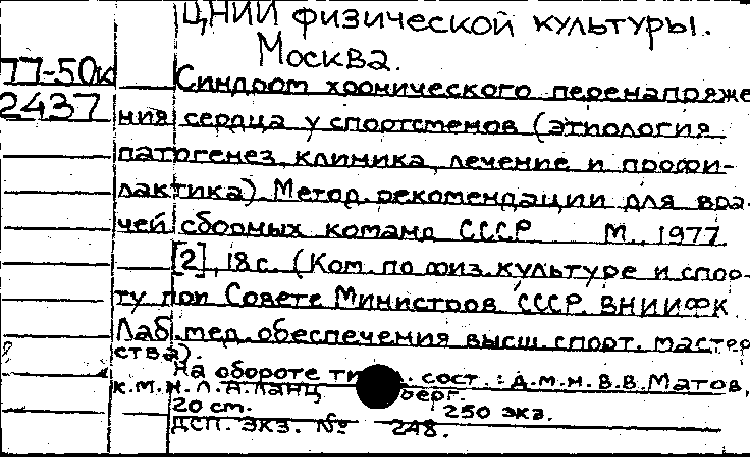 ЦНИИ физической культуры.
Москва.
П-50к Синдром хронического перенапряже
2437 ния сердца у спортсменов (этиология
патогенез, клиника, лечение и профи-
лактика). Метод. рекомендации для вра-
чей сборных команд СССР. М., 1977.
[2], 18 с. (Ком. по физ. культуре и спор-
ту при Совете Министров СССР. ВНИИФК.
Лаб. мед. обеспечения высш. спорт. мастер
ства).
На обороте тит. сост.: д.м.н. В.В. Матов,
к.м.н. Л.А. Ланц берг.
20 см. 250 экз.
ДСП. экз. № 248.